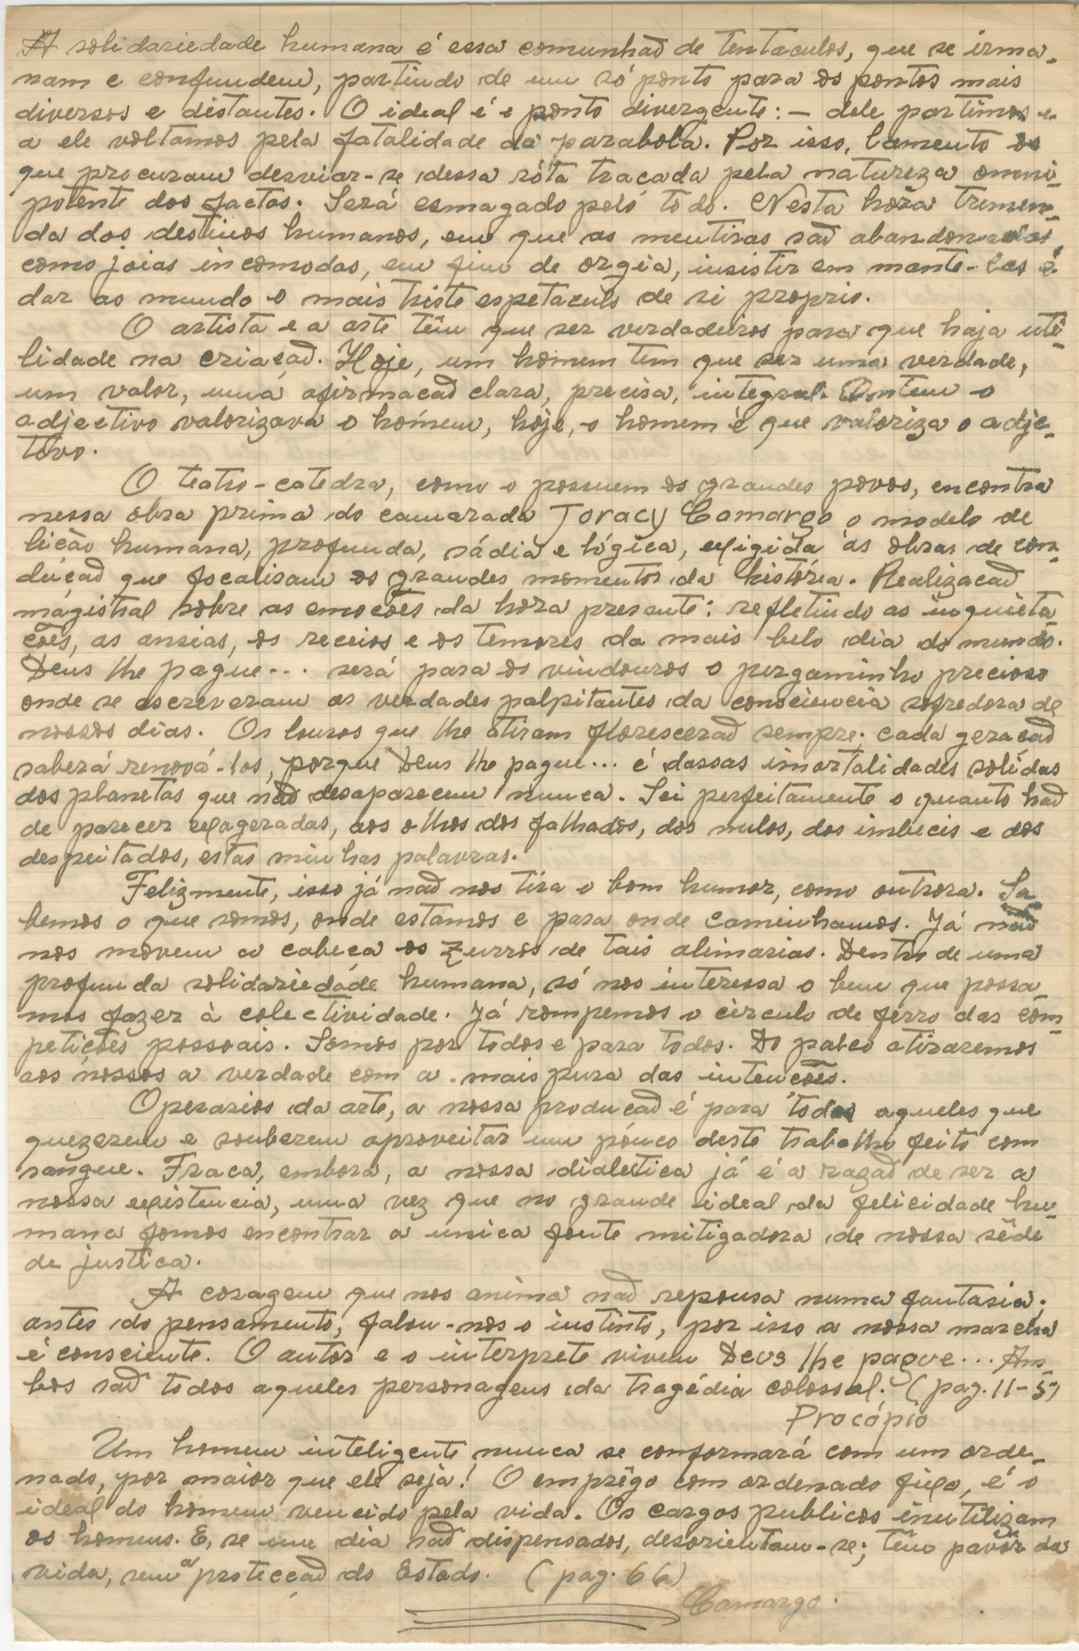 A solidariedade humana é essa comunhaõ de tentaculos, que se irma-
nam e confundem, partindo de um só ponto para os pontos mais
diversos e distantes. O ideal é o ponto divergente: – dele partimos e
a ele voltamos pela fatalidade da parabola. Por isso, lamento os
que procuram desviar-se dessa róta tracada pela natureza omni-
potente dos factos. Será esmagado pelo todo. Nesta hora tremen-
da dos destinos humanos, em que as mentiras saõ abandonadas,
como joias incomodas, em fim de orgia, insistir em mante-las é
dar ao mundo o mais triste espetaculo de si proprio.
O artista e a arte têm que ser verdadeiros para que haja uti-
lidade na criacaõ. Hoje, um homem tem que ser uma verdade,
um valor, uma afirmacaõ clara, precisa, integral. Ontem o
adjectivo valorizava o homem, hoje, o homem é que valoriza o adje-
tivo.
O teatro-catedra, como o possuem os grandes povos, encontra
nessa obra prima do camarada Joracy Camargo o modelo de
licão humana, profunda, sádia e lógica, exigida ás obras de con-
ducaõ que focalisam os grandes momentos da história. Realizacaõ
magistral sobre as emocões da hora presente: refletindo as inquieta
cões, as ansias, os receios e os temores da mais belo dia do mundo.
Deus lhe pague... será para os vindouros o pergaminho precioso
onde se escreveram as verdades palpitantes da consciencia sofredora de
nossos dias. Os louros que lhe atiram floresceraõ sempre. cada geracaõ
saberá renová-los, porque Deus lhe pague... é dessas imortalidades solidas
dos planetas que naõ desaparecem nunca. Sei perfeitamente o quanto haõ
de parecer exageradas, aos olhos dos falhados, dos nulos, dos imbecis e dos
despeitados, estas minhas palavras.
Felizmente, isso já naõ nos tira o bom humor, como outrora. Sa-
bemos o que somos, onde estamos e para onde caminhamos. Já naõ
nos movem a cabeça os zurros de tais alimarias. Dentro de uma
profunda solidariedade humana, só nos interessa o bem que possa-
mos fazer à colectividade. Já rompemos o circulo de ferro das com-
petições pessoais. Somos por todos e para todos. Do palco atiraremos
aos nossos a verdade com a mais pura das intencões.
Operarios da arte, a nossa producaõ é para todos aqueles que
quezerem e souberem aproveitar um pouco deste trabalho feito com
sangue. Fraca, embora, a nossa dialectica já é a razaõ de ser a
nossa existencia, uma vez que no grande ideal da felicidade hu-
mana fomos encontrar a unica fonte mitigadora de nossa sêde
de justica.
A coragem que nos anima naõ repousa numa fantasia.
antes do pensamento, falou-nos o instinto, por isso a nossa marcha
é consciente. O autor e o interprete vivem Deus lhe pague... Am-
bos saõ todos aqueles personagens da tragédia colossal. (pag. 11-5)
Procópio
Um homem inteligente nunca se conformará com um orde-
nado, por maior que ele seja! O emprêgo com ordenado fixo, é o
ideal do homem vencido pela vida. Os cargos publicos inutilizam
os homens. E, se um dia saõ dispensados, desorientam-se; têm pavôr da
vida, sem a protecçaõ do Estado. (pag. 66)
Camargo.